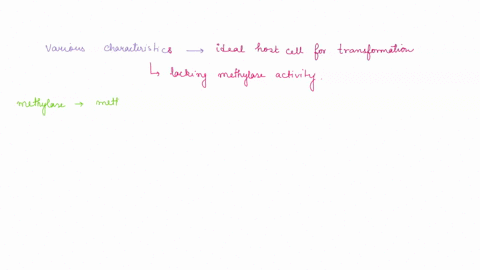 various characteristics → ideal host cell for transformation
↳ lacking methylase activity.
methylase → meth